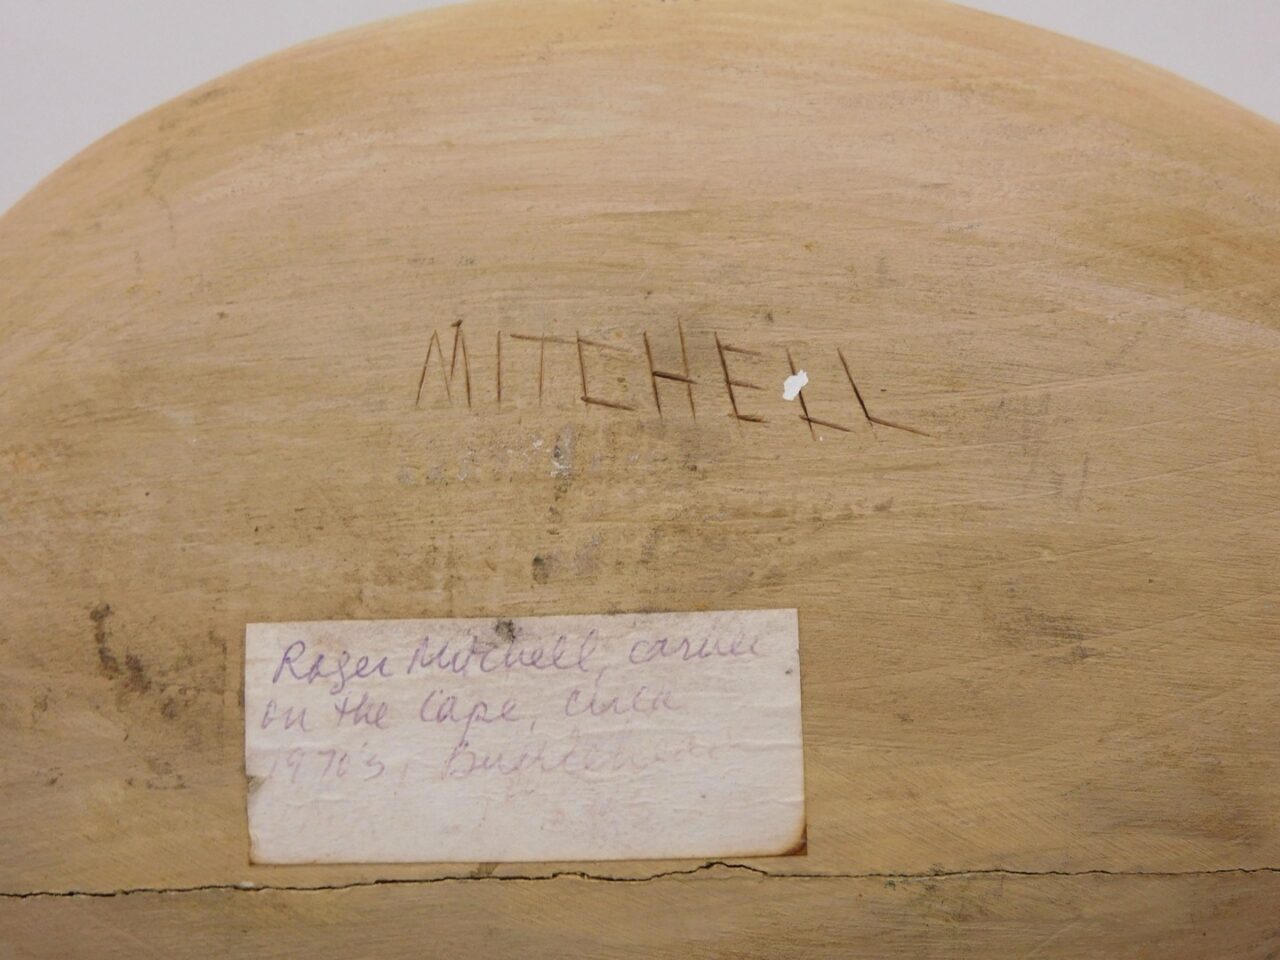 MITCHELL
Roger Mitchell, carver
on the Cape, circa
1970's,